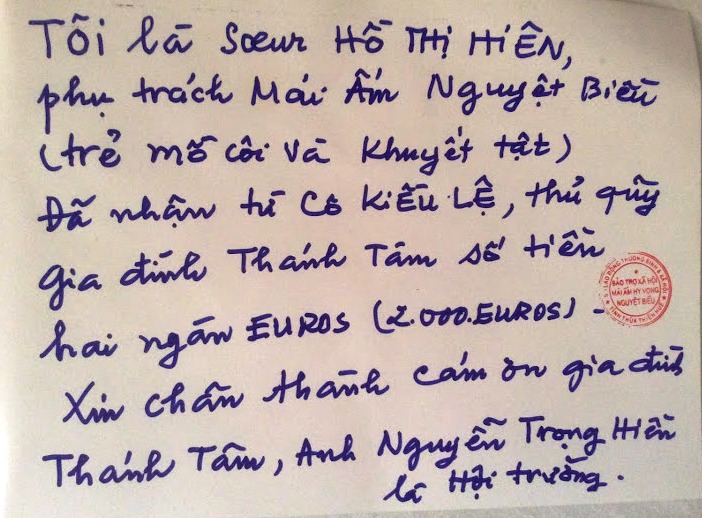 Tôi là Soeur HỒ THỊ HIÊN,
phụ trách Mái Ấm Nguyệt Biều
(trẻ mồ côi và khuyết tật)
Đã nhận từ Cô KIỀU LỆ, thủ qũy
gia đình Thánh Tâm số tiền
hai ngàn EUROS (2.000.EUROS) -
Xin chân thành cám ơn gia đình
Thánh Tâm, Anh Nguyễn Trọng Hiền
là Hội trưởng.
BẢO TRỢ XÃ HỘI
MÁI ẤM HY VỌNG
NGUYỆT BIỀU
TỈNH THỪA THIÊN HUẾ